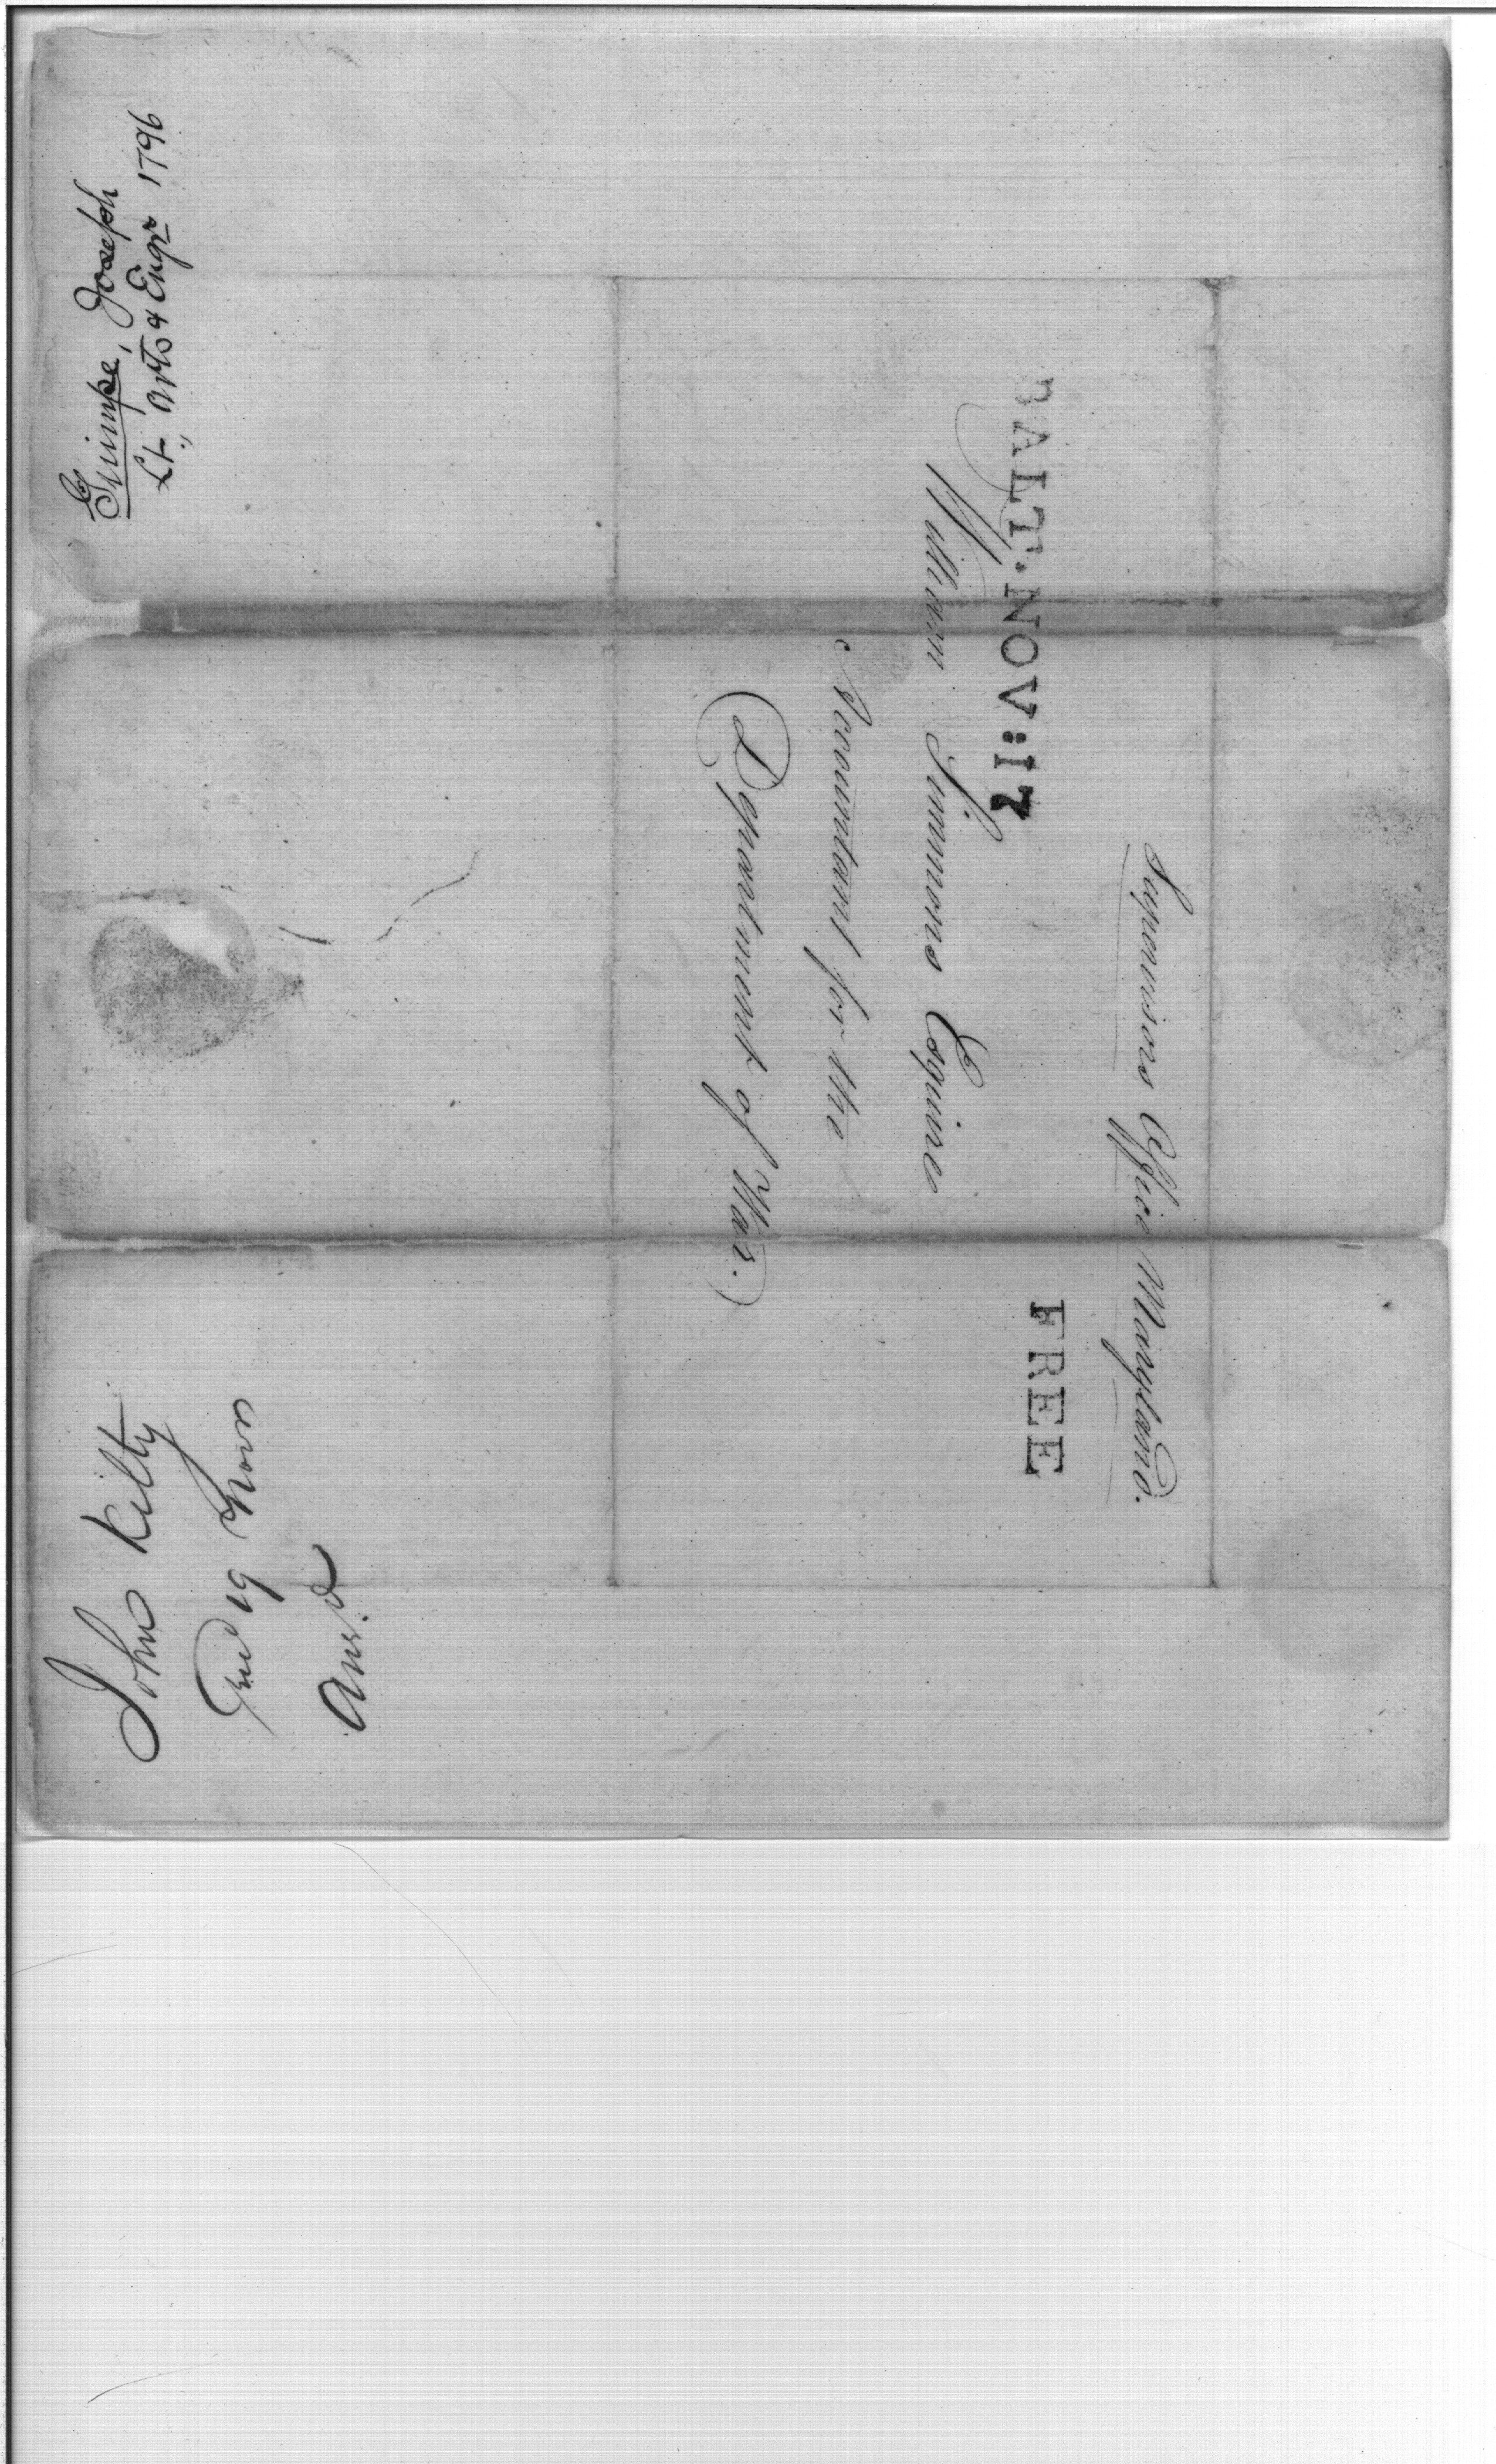 Supervisors Office Maryland.
BALT. NOV: 17
FREE
William Simmons Esquire
Accountant for the
Department of War.
Guimpe, Joseph
Lt., Arts & Engrs 1796
John Kilty
19 Novr
Ans.d